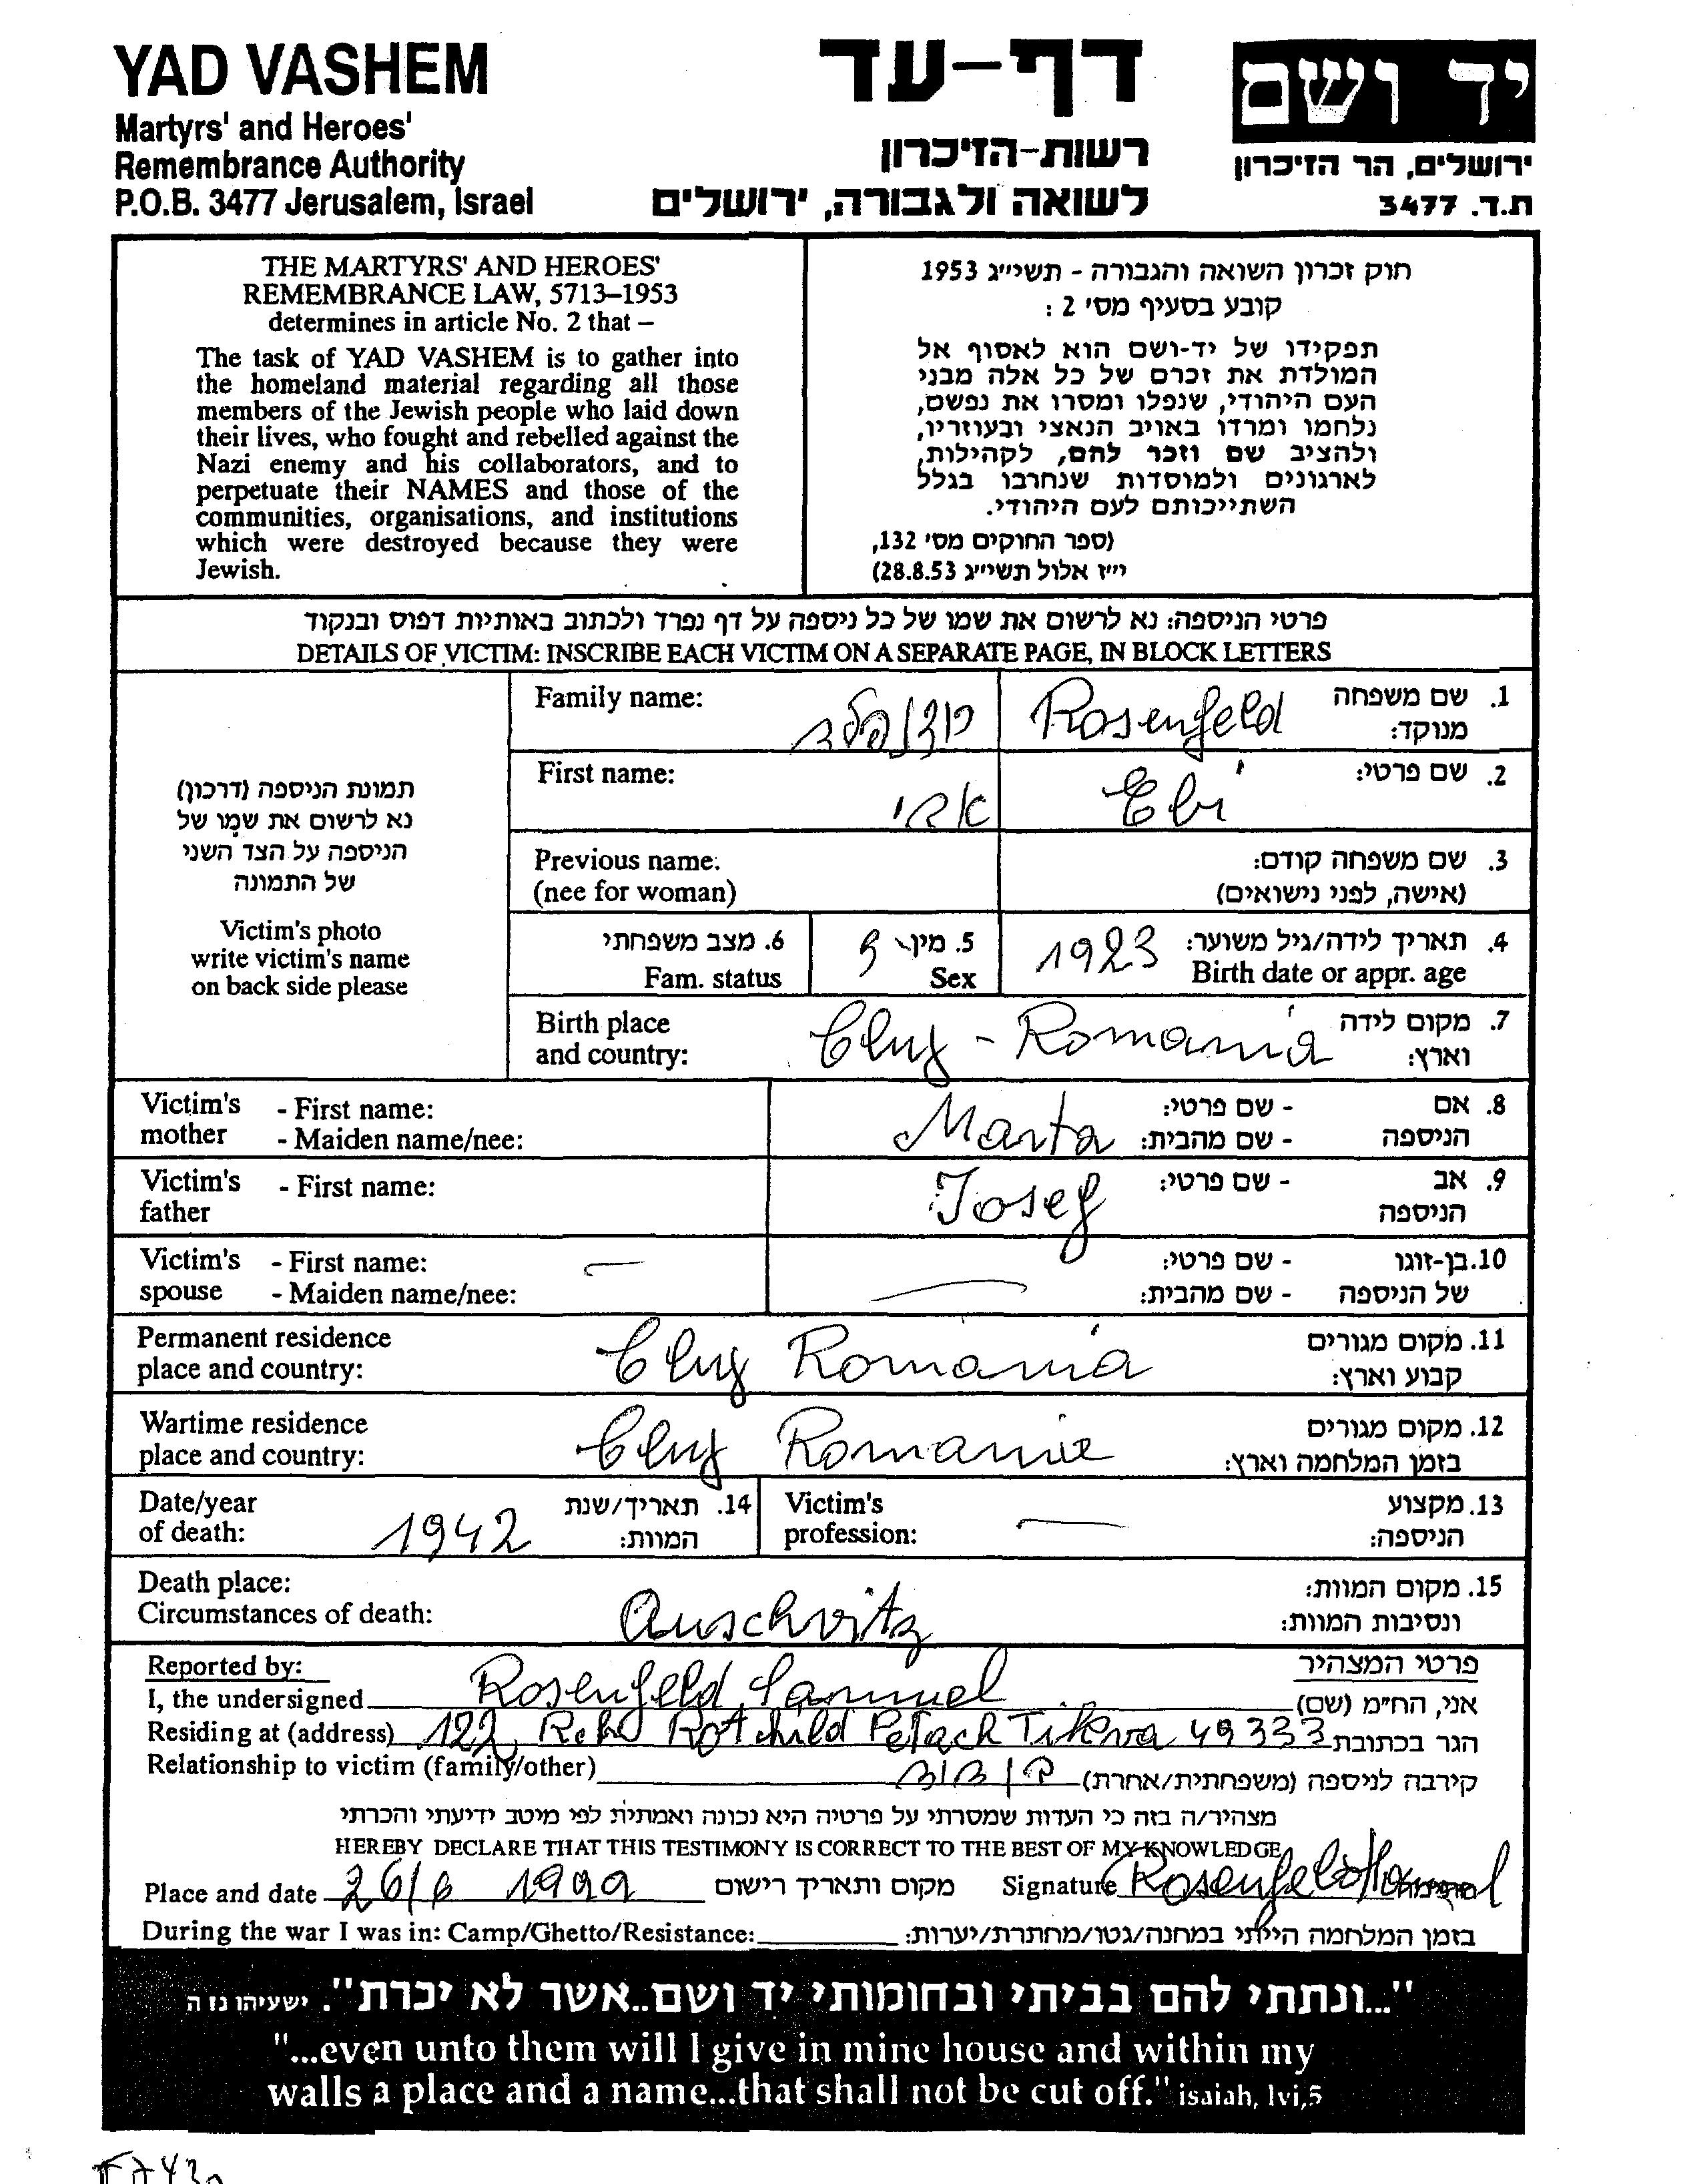 YAD VASHEM
Martyrs' and Heroes'
Remembrance Authority
P.O.B. 3477 Jerusalem, Israel
דף-עד
רשות-הזיכרון
לשואה ולגבורה, ירושלים
יד ושם
ירושלים, הר הזיכרון
ת.ד. 3477
THE MARTYRS' AND HEROES'
REMEMBRANCE LAW, 5713–1953
determines in article No. 2 that –
The task of YAD VASHEM is to gather into
the homeland material regarding all those
members of the Jewish people who laid down
their lives, who fought and rebelled against the
Nazi enemy and his collaborators, and to
perpetuate their NAMES and those of the
communities, organisations, and institutions
which were destroyed because they were
Jewish.
חוק זכרון השואה והגבורה - תשי״ג 1953
קובע בסעיף מס' 2 :
תפקידו של יד-ושם הוא לאסוף אל
המולדת את זכרם של כל אלה מבני
העם היהודי, שנפלו ומסרו את נפשם,
נלחמו ומרדו באויב הנאצי ובעוזריו,
ולהציב שם וזכר להם, לקהילות,
לארגונים ולמוסדות שנחרבו בגלל
השתייכותם לעם היהודי.
(ספר החוקים מס' 132,
י״ז אלול תשי״ג 28.8.53)
פרטי הניספה: נא לרשום את שמו של כל ניספה על דף נפרד ולכתוב באותיות דפוס ובנקוד
DETAILS OF VICTIM: INSCRIBE EACH VICTIM ON A SEPARATE PAGE, IN BLOCK LETTERS
תמונת הניספה (דרכון)
נא לרשום את שמו של
הניספה על הצד השני
של התמונה
Victim's photo
write victim's name
on back side please
Family name: רוזנפלד Rosenfeld 1. שם משפחה
מנוקד:
First name: אבי Ebi 2. שם פרטי:
Previous name: 3. שם משפחה קודם:
(nee for woman) (אישה, לפני נישואים)
6. מצב משפחתי 5. מין 1923 4. תאריך לידה/גיל משוער:
Fam. status Sex Birth date or appr. age
Birth place Cluj - Romania 7. מקום לידה
and country: וארץ:
Victim's - First name: Marta - שם פרטי: 8. אם
mother - Maiden name/nee: - שם מהבית: הניספה
Victim's - First name: Josef - שם פרטי: 9. אב
father הניספה
Victim's - First name: — - שם פרטי: 10. בן-זוגו
spouse - Maiden name/nee: — - שם מהבית: של הניספה
Permanent residence Cluj Romania 11. מקום מגורים
place and country: קבוע וארץ:
Wartime residence Cluj Romania 12. מקום מגורים
place and country: בזמן המלחמה וארץ:
Date/year 1942 14. תאריך/שנת Victim's — 13. מקצוע
of death: המוות: profession: הניספה:
Death place: Auschvitz 15. מקום המוות:
Circumstances of death: ונסיבות המוות:
Reported by: פרטי המצהיר
I, the undersigned Rosenfeld Samuel אני, הח״מ (שם)
Residing at (address) 122, Reho Rotchild Petach Tikva 49333 הגר בכתובת
Relationship to victim (family/other) קירבה לניספה (משפחתית/אחרת)
מצהיר/ה בזה כי העדות שמסרתי על פרטיה היא נכונה ואמתית לפי מיטב ידיעתי והכרתי
HEREBY DECLARE THAT THIS TESTIMONY IS CORRECT TO THE BEST OF MY KNOWLEDGE
Place and date 26/6 1999 מקום ותאריך רישום Signature Rosenfeld
During the war I was in: Camp/Ghetto/Resistance: בזמן המלחמה הייתי במחנה/גטו/מחתרת/יערות:
"...ונתתי להם בביתי ובחומותי יד ושם..אשר לא יכרת". ישעיהו נו ה
"...even unto them will I give in mine house and within my
walls a place and a name...that shall not be cut off." isaiah, lvi,5